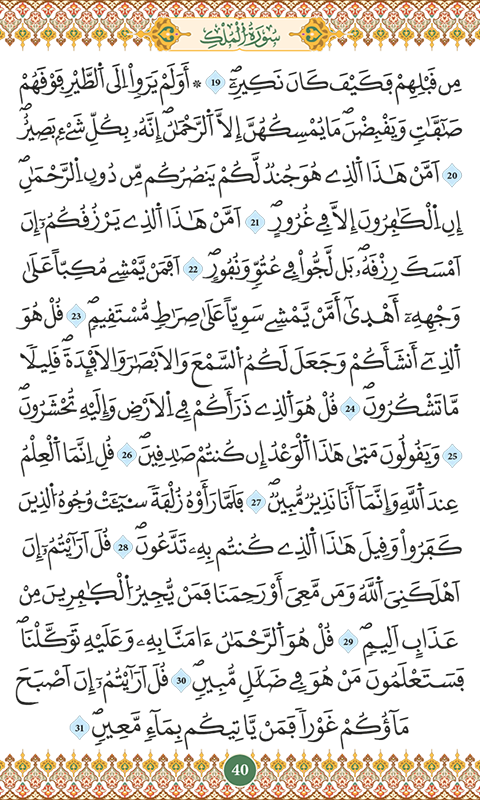 سُورَةُ الْمُلْكِ
مِن قَبْلِهِمْ فَكَيْفَ كَانَ نَكِيرِۦٓۖ 19 ۞ أَوَلَمْ يَرَوِاْ اِلَى اَ۬لطَّيْرِ فَوْقَهُمْ
صَٰٓفَّٰتٖ وَيَقْبِضْنَۖ مَا يُمْسِكُهُنَّ إِلَّا اَ۬لرَّحْمَٰنُۖ إِنَّهُۥ بِكُلِّ شَےْءِۢ بَصِيرٌۖ
20 اَمَّنْ هَٰذَا اَ۬لذِے هُوَ جُندٞ لَّكُمْ يَنصُرُكُم مِّن دُونِ اِ۬لرَّحْمَٰنِۖ
إِنِ اِ۬لْكَٰفِرُونَ إِلَّا فِے غُرُورٍۖ 21 اَمَّنْ هَٰذَا اَ۬لذِے يَرْزُقُكُمُۥٓ إِنَ
اَمْسَكَ رِزْقَهُۥۖ بَل لَّجُّواْ فِے عُتُوّٖ وَنُفُورٍۖ 22 اَفَمَنْ يَّمْشِے مُكِبّاً عَلَىٰ
وَجْهِهِۦٓ أَهْد۪ىٰٓ أَمَّنْ يَّمْشِے سَوِيّاً عَلَىٰ صِرَٰطٖ مُّسْتَقِيمٖۖ 23 قُلْ هُوَ
اَ۬لذِےٓ أَنشَأَكُمْ وَجَعَلَ لَكُمُ اُ۬لسَّمْعَ وَالَابْصَٰرَ وَالَافْـِٕدَةَۖ قَلِيلاٗ
مَّا تَشْكُرُونَۖ 24 قُلْ هُوَ اَ۬لذِے ذَرَأَكُمْ فِے اِ۬لَارْضِ وَإِلَيْهِ تُحْشَرُونَۖ
25 وَيَقُولُونَ مَت۪ىٰ هَٰذَا اَ۬لْوَعْدُ إِن كُنتُمْ صَٰدِقِينَۖ 26 قُلِ اِنَّمَا اَ۬لْعِلْمُ
عِندَ اَ۬للَّهِ وَإِنَّمَآ أَنَا نَذِيرٞ مُّبِينٞۖ 27 فَلَمَّا رَأَوْهُ زُلْفَةٗ سِيٓـَٔتْ وُجُوهُ اُ۬لذِينَ
كَفَرُواْ وَقِيلَ هَٰذَا اَ۬لذِے كُنتُم بِهِۦ تَدَّعُونَۖ 28 قُلَ اَرَٰٓيْتُمُۥٓ إِنَ
اَهْلَكَنِيَ اَ۬للَّهُ وَمَن مَّعِيَ أَوْ رَحِمَنَا فَمَنْ يُّجِيرُ اُ۬لْكٰ۪فِرِينَ مِنْ
عَذَابٍ اَلِيمٖۖ 29 قُلْ هُوَ اَ۬لرَّحْمَٰنُ ءَامَنَّا بِهِۦ وَعَلَيْهِ تَوَكَّلْنَاۖ
فَسَتَعْلَمُونَ مَنْ هُوَ فِے ضَلَٰلٖ مُّبِينٖۖ 30 قُلَ اَرَٰٓيْتُمُۥٓ إِنَ اَصْبَحَ
مَآؤُكُمْ غَوْراٗ فَمَنْ يَّاتِيكُم بِمَآءٖ مَّعِينٖۖ 31
40